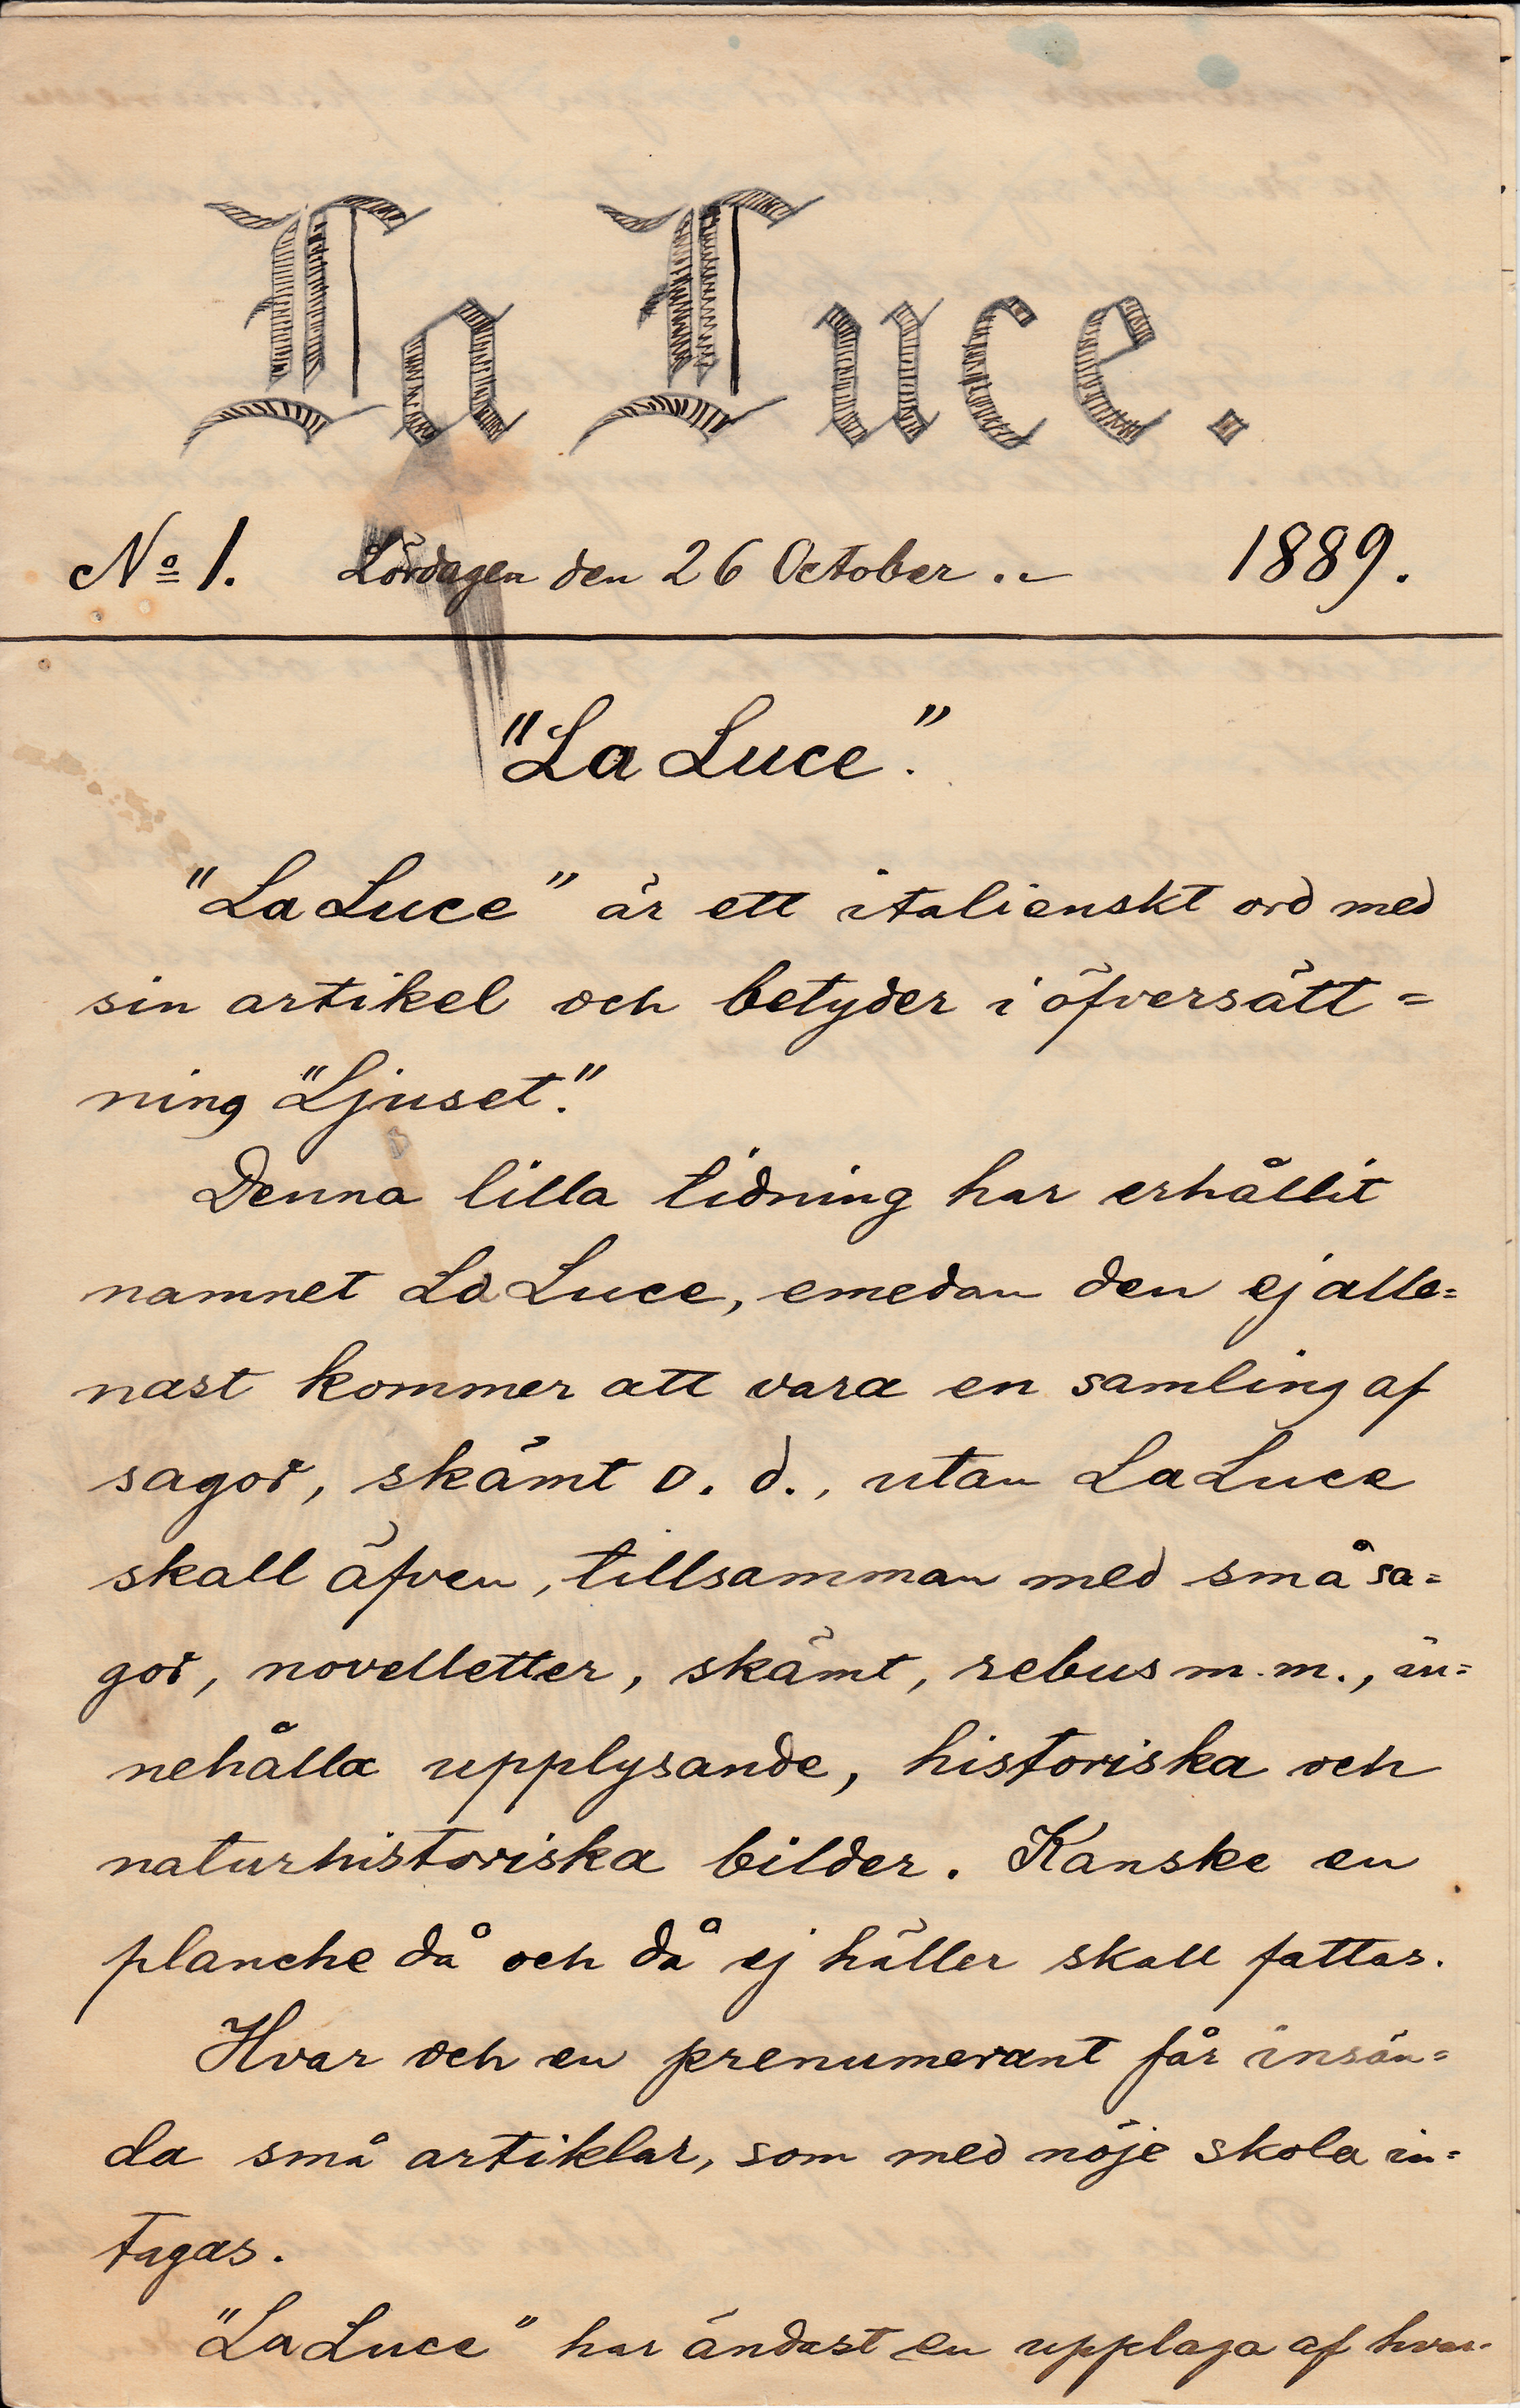 La Luce.
No 1. Lördagen den 26 October .. 1889.
"La Luce".
"La Luce" är ett italienskt ord med
sin artikel och betyder i öfversätt=
ning "Ljuset".
Denna lilla tidning har erhållit
namnet La Luce, emedan den ej alle=
nast kommer att vara en samling af
sagor, skämt o. d., utan La Luce
skall äfven, tillsamman med små sa=
gor, novelletter, skämt, rebus m. m., in=
nehålla upplysande, historiska och
naturhistoriska bilder. Kanske en
planche då och då ej häller skall fattas.
Hvar och en prenumerant får insän=
da små artiklar, som med nöje skola in=
tagas.
"La Luce" har ändast en upplaga af hvar-